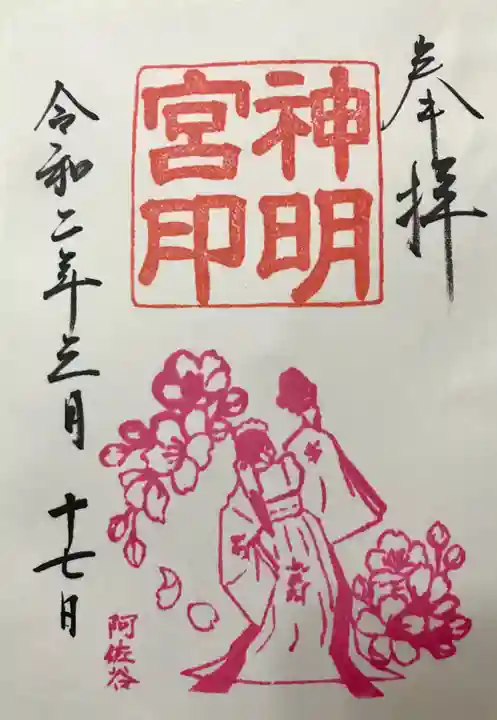 奉拝
神明
宮印
令和二年三月十七日
阿佐谷